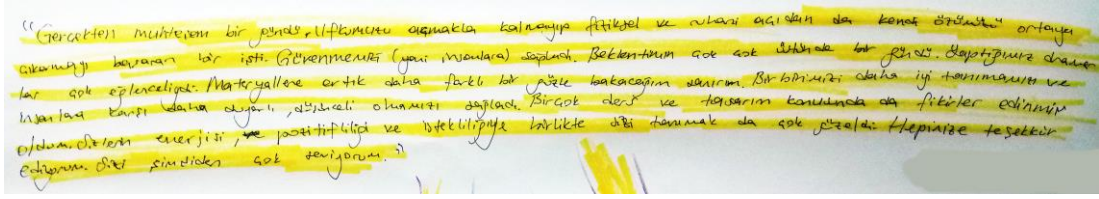 "Gerçekten muhteşem bir gündü. Ufkumuzu açmakla kalmayıp fiziksel ve ruhani açıdan da kendi özümüzü ortaya
çıkarmayı başaran bir işti. Güvenmemizi (yani insanlara) sağladı. Beklentimin çok çok üstünde bir gündü. Yaptığımız drama
lar çok eğlenceliydi. Materyallere artık daha farklı bir gözle bakacağım sanırım. Birbirimizi daha iyi tanımamızı ve
insanlara karşı daha duyarlı, düşünceli olmamızı sağladı. Birçok ders ve tasarım konusunda da fikirler edinmiş
oldum. Sizlerin enerjisi, pozitifliliği ve istekliliğiyle birlikte sizi tanımak da çok güzeldi. Hepinize teşekkür
ediyorum. Sizi şimdiden çok seviyorum."